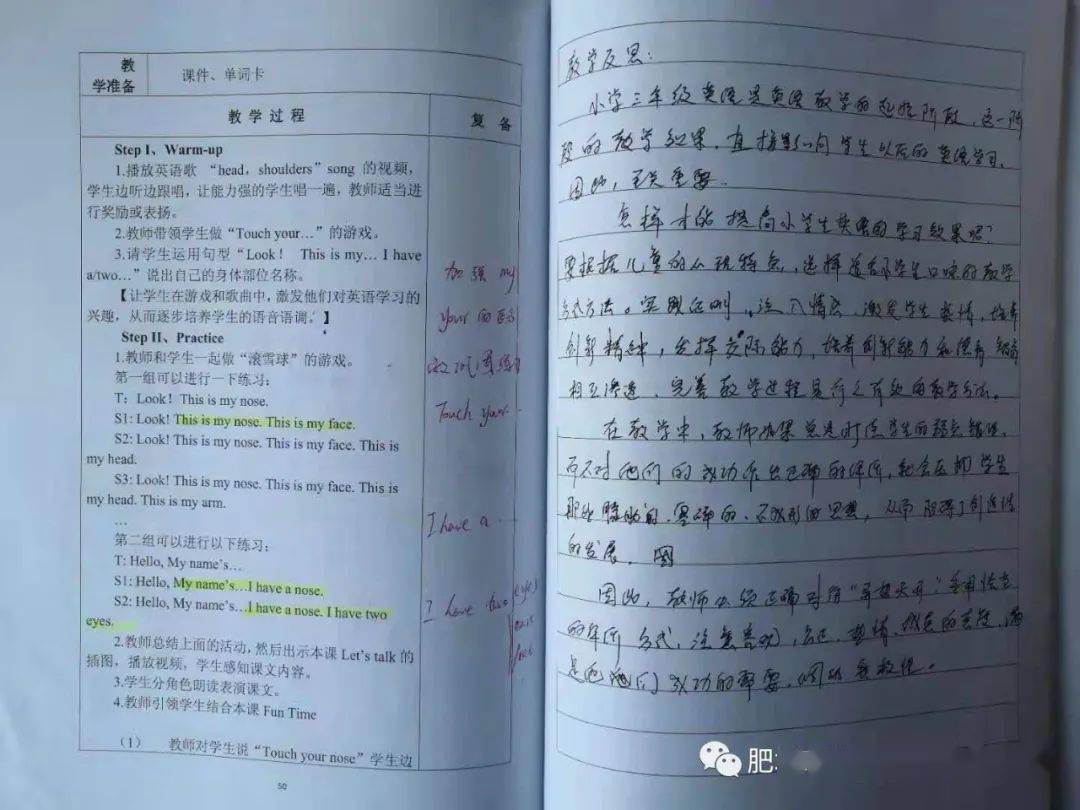 教
学准备
课件、单词卡
教 学 过 程
复 备
Step I、Warm-up
1.播放英语歌 “head, shoulders” song 的视频，
学生边听边跟唱，让能力强的学生唱一遍，教师适当进
行奖励或表扬。
2.教师带领学生做“Touch your…”的游戏。
3.请学生运用句型“Look！ This is my… I have
a/two…”说出自己的身体部位名称。
【让学生在游戏和歌曲中，激发他们对英语学习的
兴趣，从而逐步培养学生的语音语调。】
Step II、Practice
1.教师和学生一起做“滚雪球”的游戏。
第一组可以进行一下练习：
T：Look！This is my nose.
S1: Look! This is my nose. This is my face.
S2: Look! This is my nose. This is my face. This is
my head.
S3: Look! This is my nose. This is my face. This is
my head. This is my arm.
…
第二组可以进行以下练习：
T: Hello, My name’s…
S1: Hello, My name’s…I have a nose.
S2: Hello, My name’s…I have a nose. I have two
eyes.
2.教师总结上面的活动，然后出示本课 Let’s talk 的
插图，播放视频，学生感知课文内容。
3.学生分角色朗读表演课文。
4.教师引领学生结合本课 Fun Time
（1） 教师对学生说“Touch your nose”学生边
50
加强 my
your 的区分
Touch your…
I have a …
I have two
教学反思：
小学三年级英语是英语教学的起始阶段，这一阶
段的教学效果，直接影响学生以后的英语学习，
因此，至关重要．
怎样才能提高小学生英语的学习效果呢？
要根据儿童的心理特点，选择适合学生口味的教学
方式方法。实践证明，注入情感，激发学生热情，培养
创新精神，发挥实际能力，培养创新能力和
相互渗透．完善教学过程是行之有效的教学方法。
在教学中，教师如果总是盯住学生的缺点错误，
而不对他们的成功作出正确的评价，就会在
的 思想，从而阻碍了创造性
的发展．
因此，教师必须正确对待“异想天开”
的评价方式，注意
他们成功的需要，
肥: